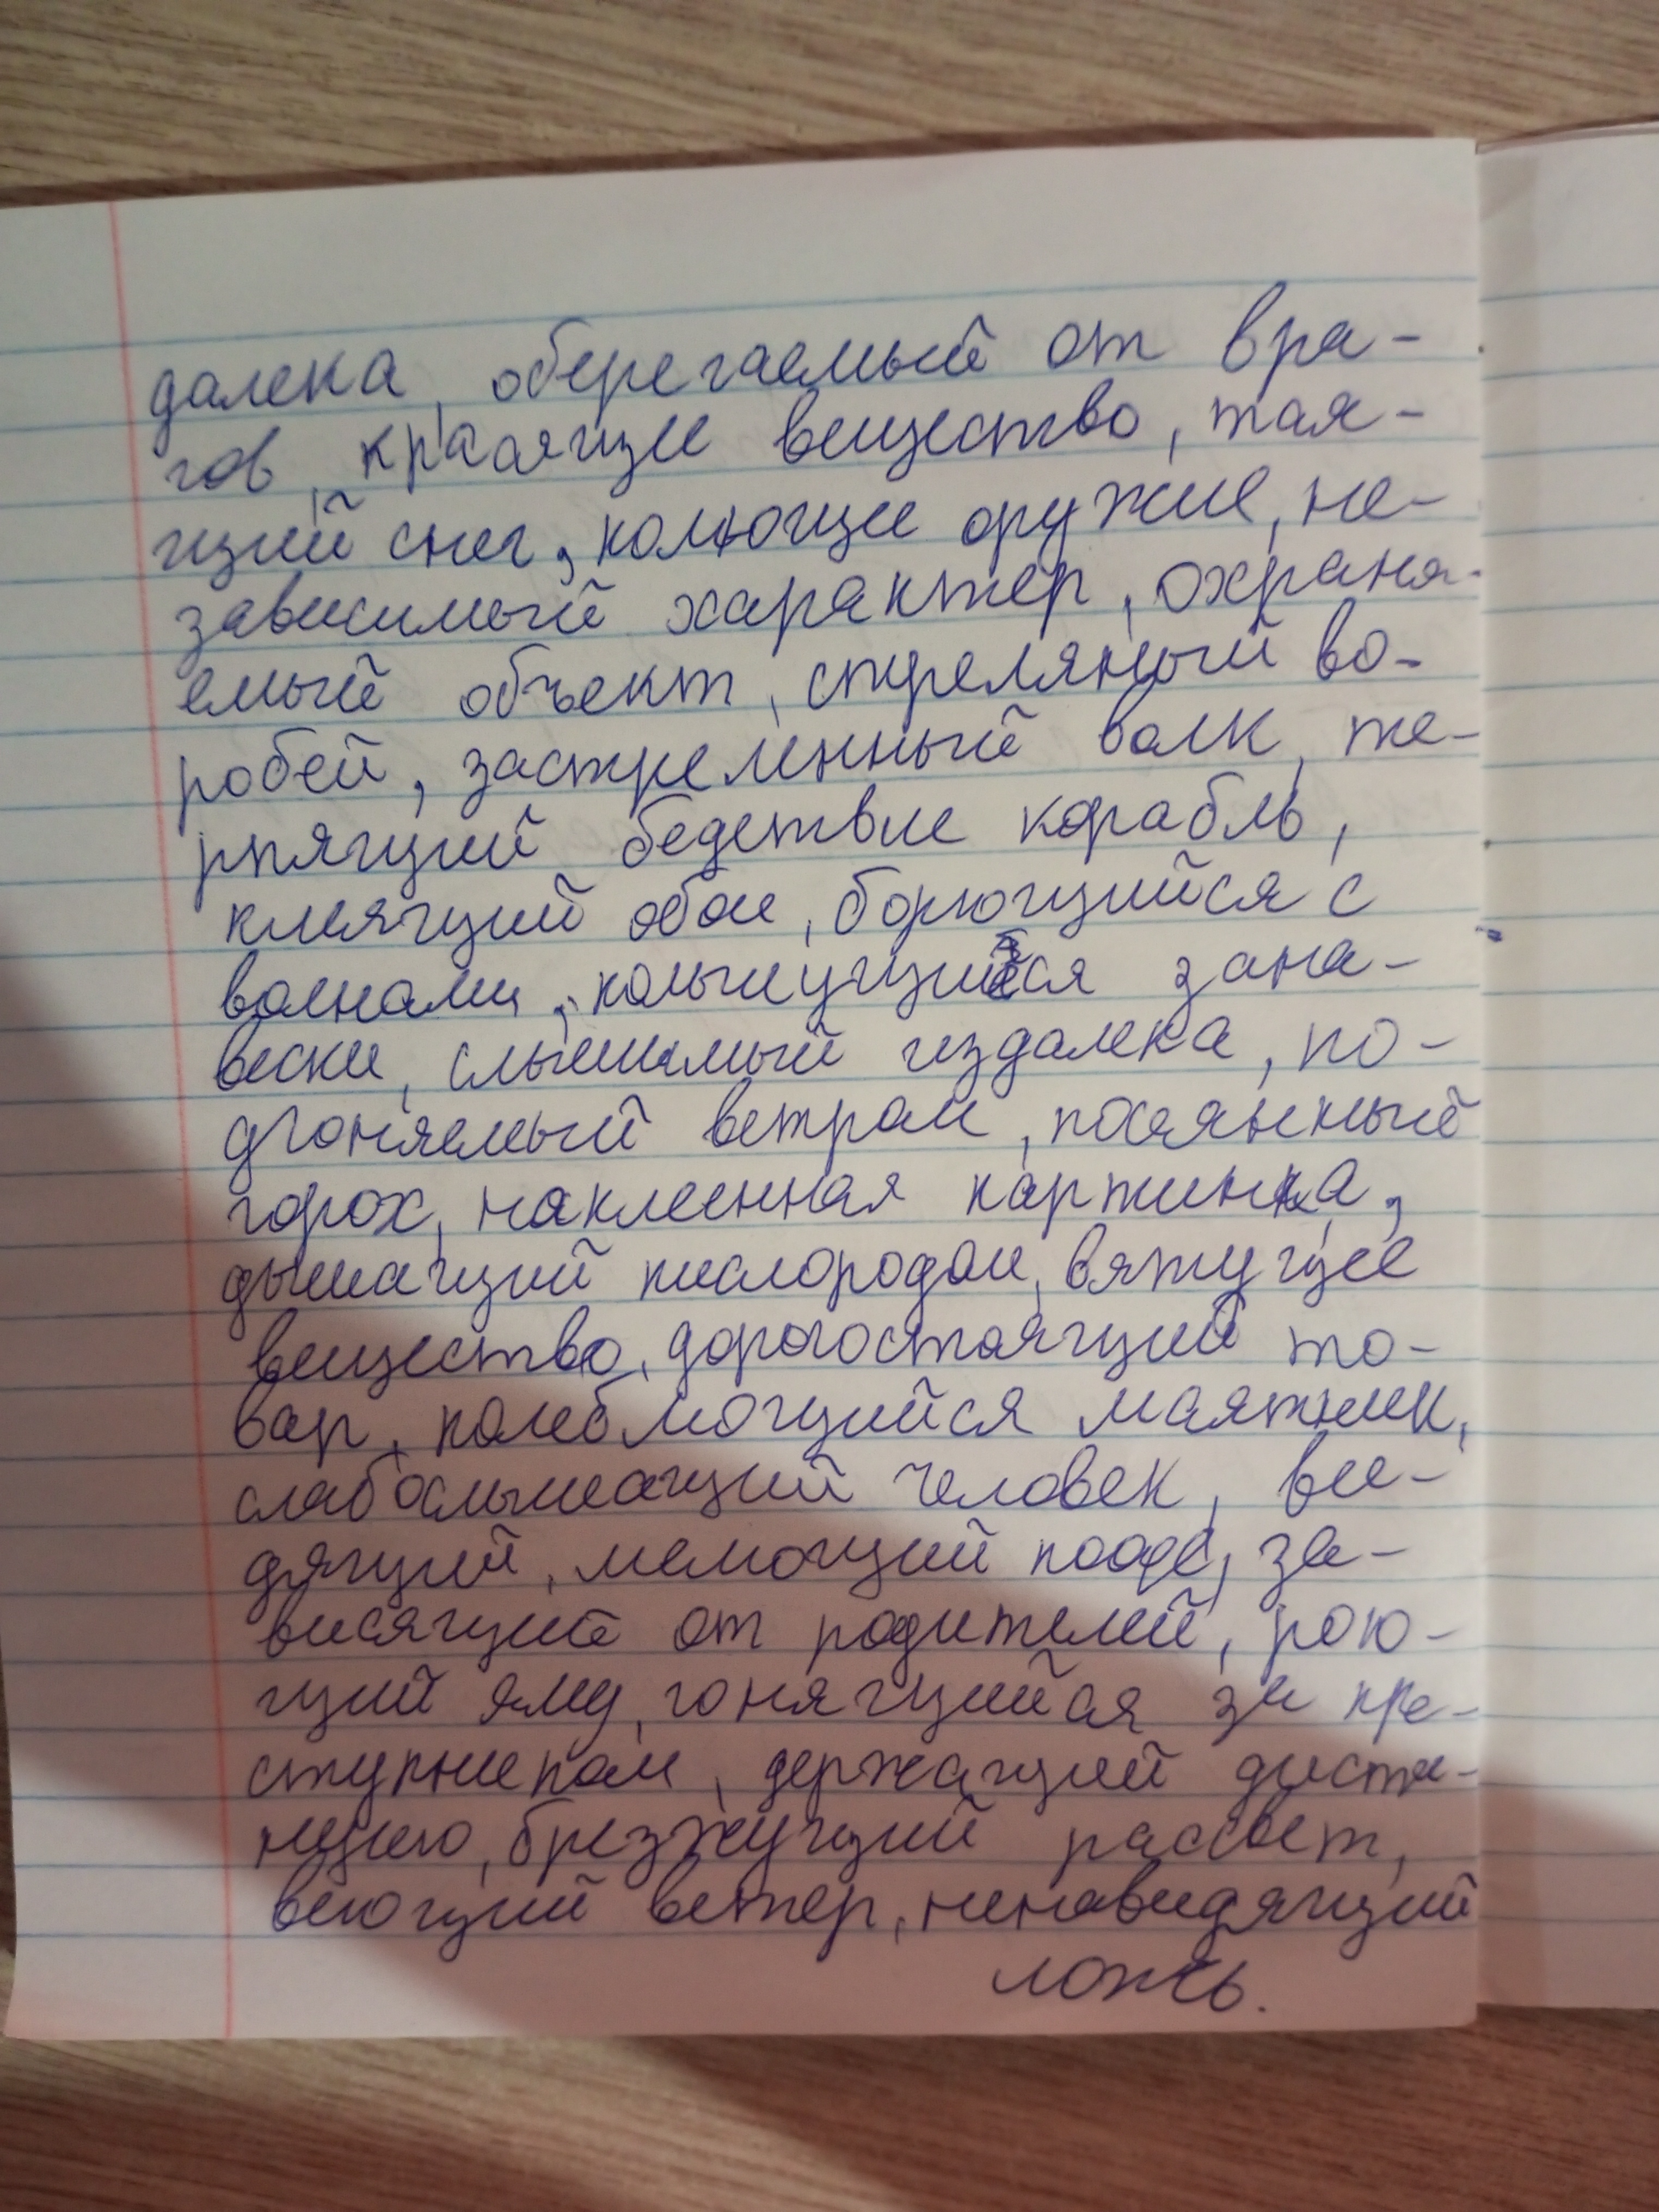 далека, оберегаемый от вра-
гов, красящее вещество, тая-
щий снег, колющее оружие, не-
зависимый характер, охраня-
емый объект, стреляный во-
робей, застреленный волк, те-
рпящий бедствие корабль,
клеящий обои, борющийся с
волнами, колышущийся зана-
вески, слышимый издалека, по-
дгоняемый ветром, посеянный
горох, наклеенная картинка,
дышащий кислородом, вяжущее
вещество, дорогостоящий то-
вар, колеблющийся маятник,
слабослышащий человек, ви-
дящий, мелющий кофе, за-
висящий от родителей, рою-
щий яму, гонящийся за пре-
ступником, держащий диста-
нцию, брезжущий рассвет,
веющий ветер, ненавидящий
ложь.